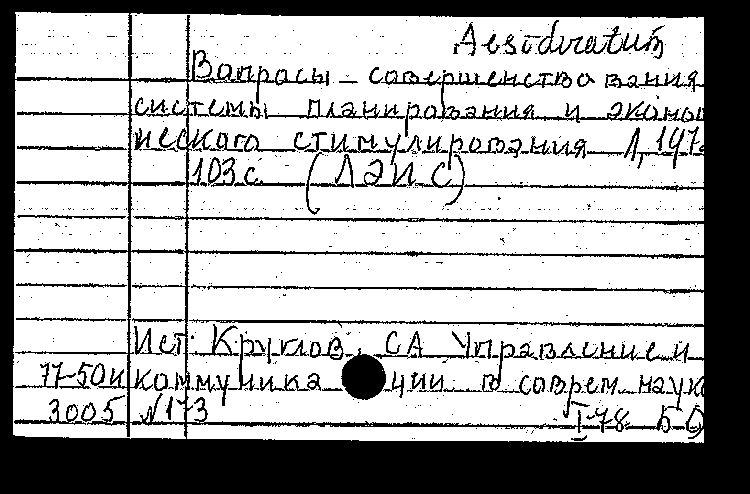 Desideratum
Вопросы совершенствования
системы планирования и эконом
ического стимулирования Л, 197
103 с. (ЛЭИС)
Ист: Круглов, СА Управление и
77-50и коммуника ции в соврем. науке
3005 №173 I-78 БО